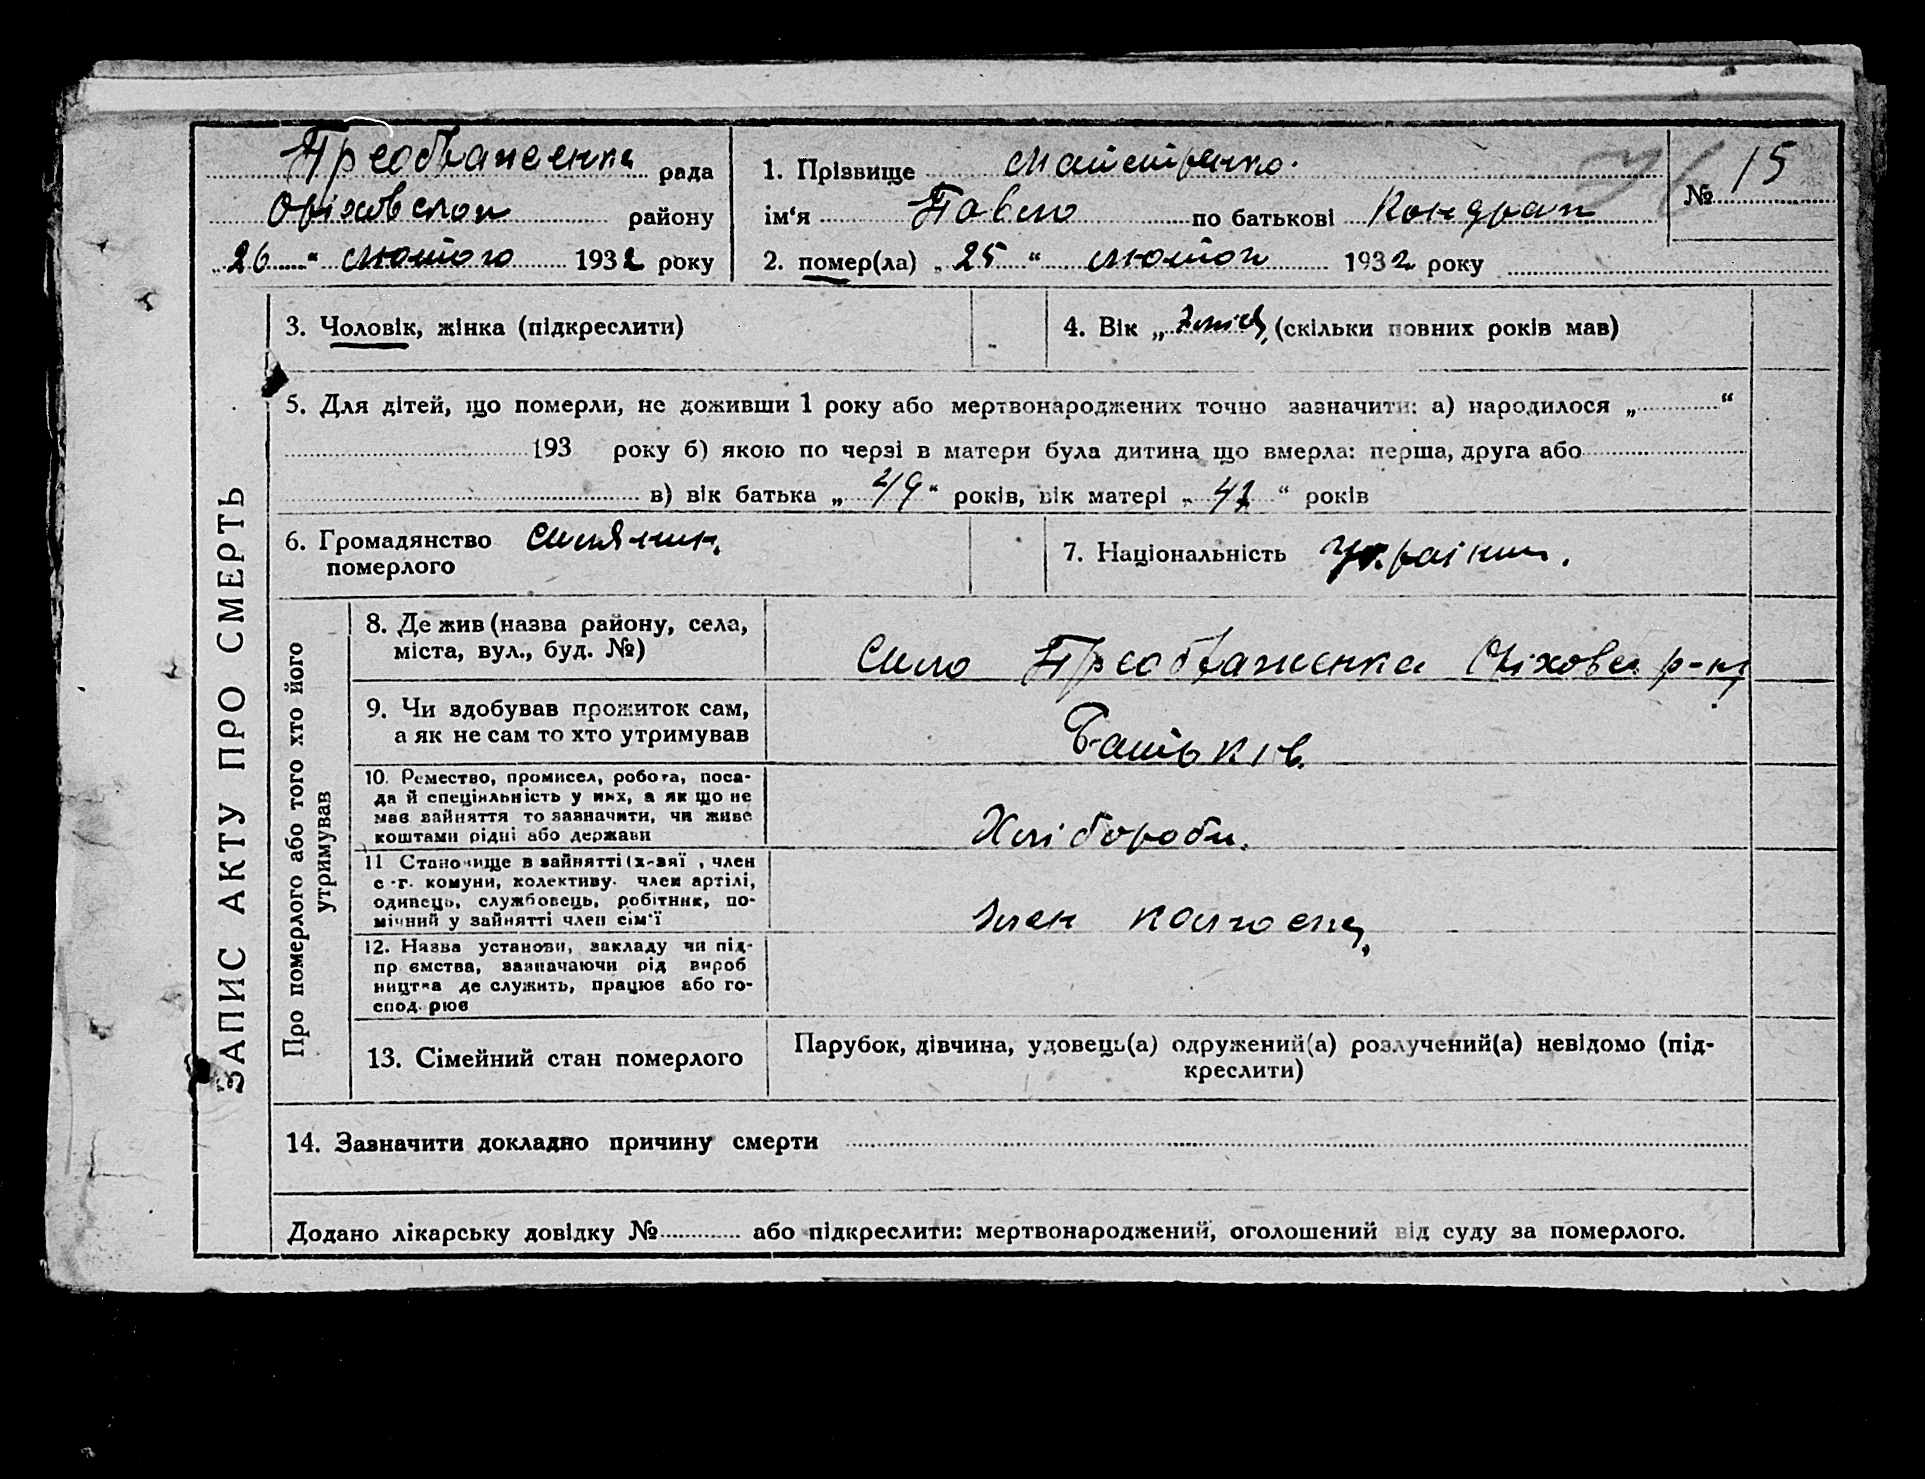 Преображенка рада
Оріховськог району
„26“ лютого 1932 року
1. Прізвище Майстренко.
ім‘я Павло по батькові Кондрат
2. помер(ла) „25“ лютог 1932 року
№ 15
3. Чоловік, жінка (підкреслити)
4. Вік „ (скільки повних років мав)
5. Для дітей, що померли, не доживши 1 року або мертвонароджених точно зазначити: а) народилося „ “
193 року б) якою по черзі в матери була дитина що вмерла: перша, друга або
в) вік батька „49“ років, вік матері „ “ років
6. Громадянство
померлого
селянин.
7. Національність Українн.
ЗАПИС АКТУ ПРО СМЕРТЬ
Про померлого або того хто його
утримував
8. Де жив (назва району, села,
міста, вул., буд. №)
Село Преображенка Оріховс. р-ну
9. Чи здобував прожиток сам,
а як не сам то хто утримував
Батьків.
10. Ремество, промисел, робота, поса-
да й спеціяльність у них, а як що не
має зайняття то зазначити, чи живе
коштами рідні або держави
Хлібороби.
11 Становище в зайнятті (х-зяї , член
с-г. комуни, колективу. член артілі,
одинець, службовець, робітник, по-
мічний у зайнятті член сім‘ї
член колгоспу,
12. Назва установи, закладу чи під-
пр ємства, зазначаючи рід вироб
ництва де служить, працює або го-
спод.рює
13. Сімейний стан померлого
Парубок, дівчина, удовець(а) одружений(а) розлучений(а) невідомо (під-
креслити)
14. Зазначити докладно причину смерти
Додано лікарську довідку № або підкреслити: мертвонароджений, оголошений від суду за померлого.